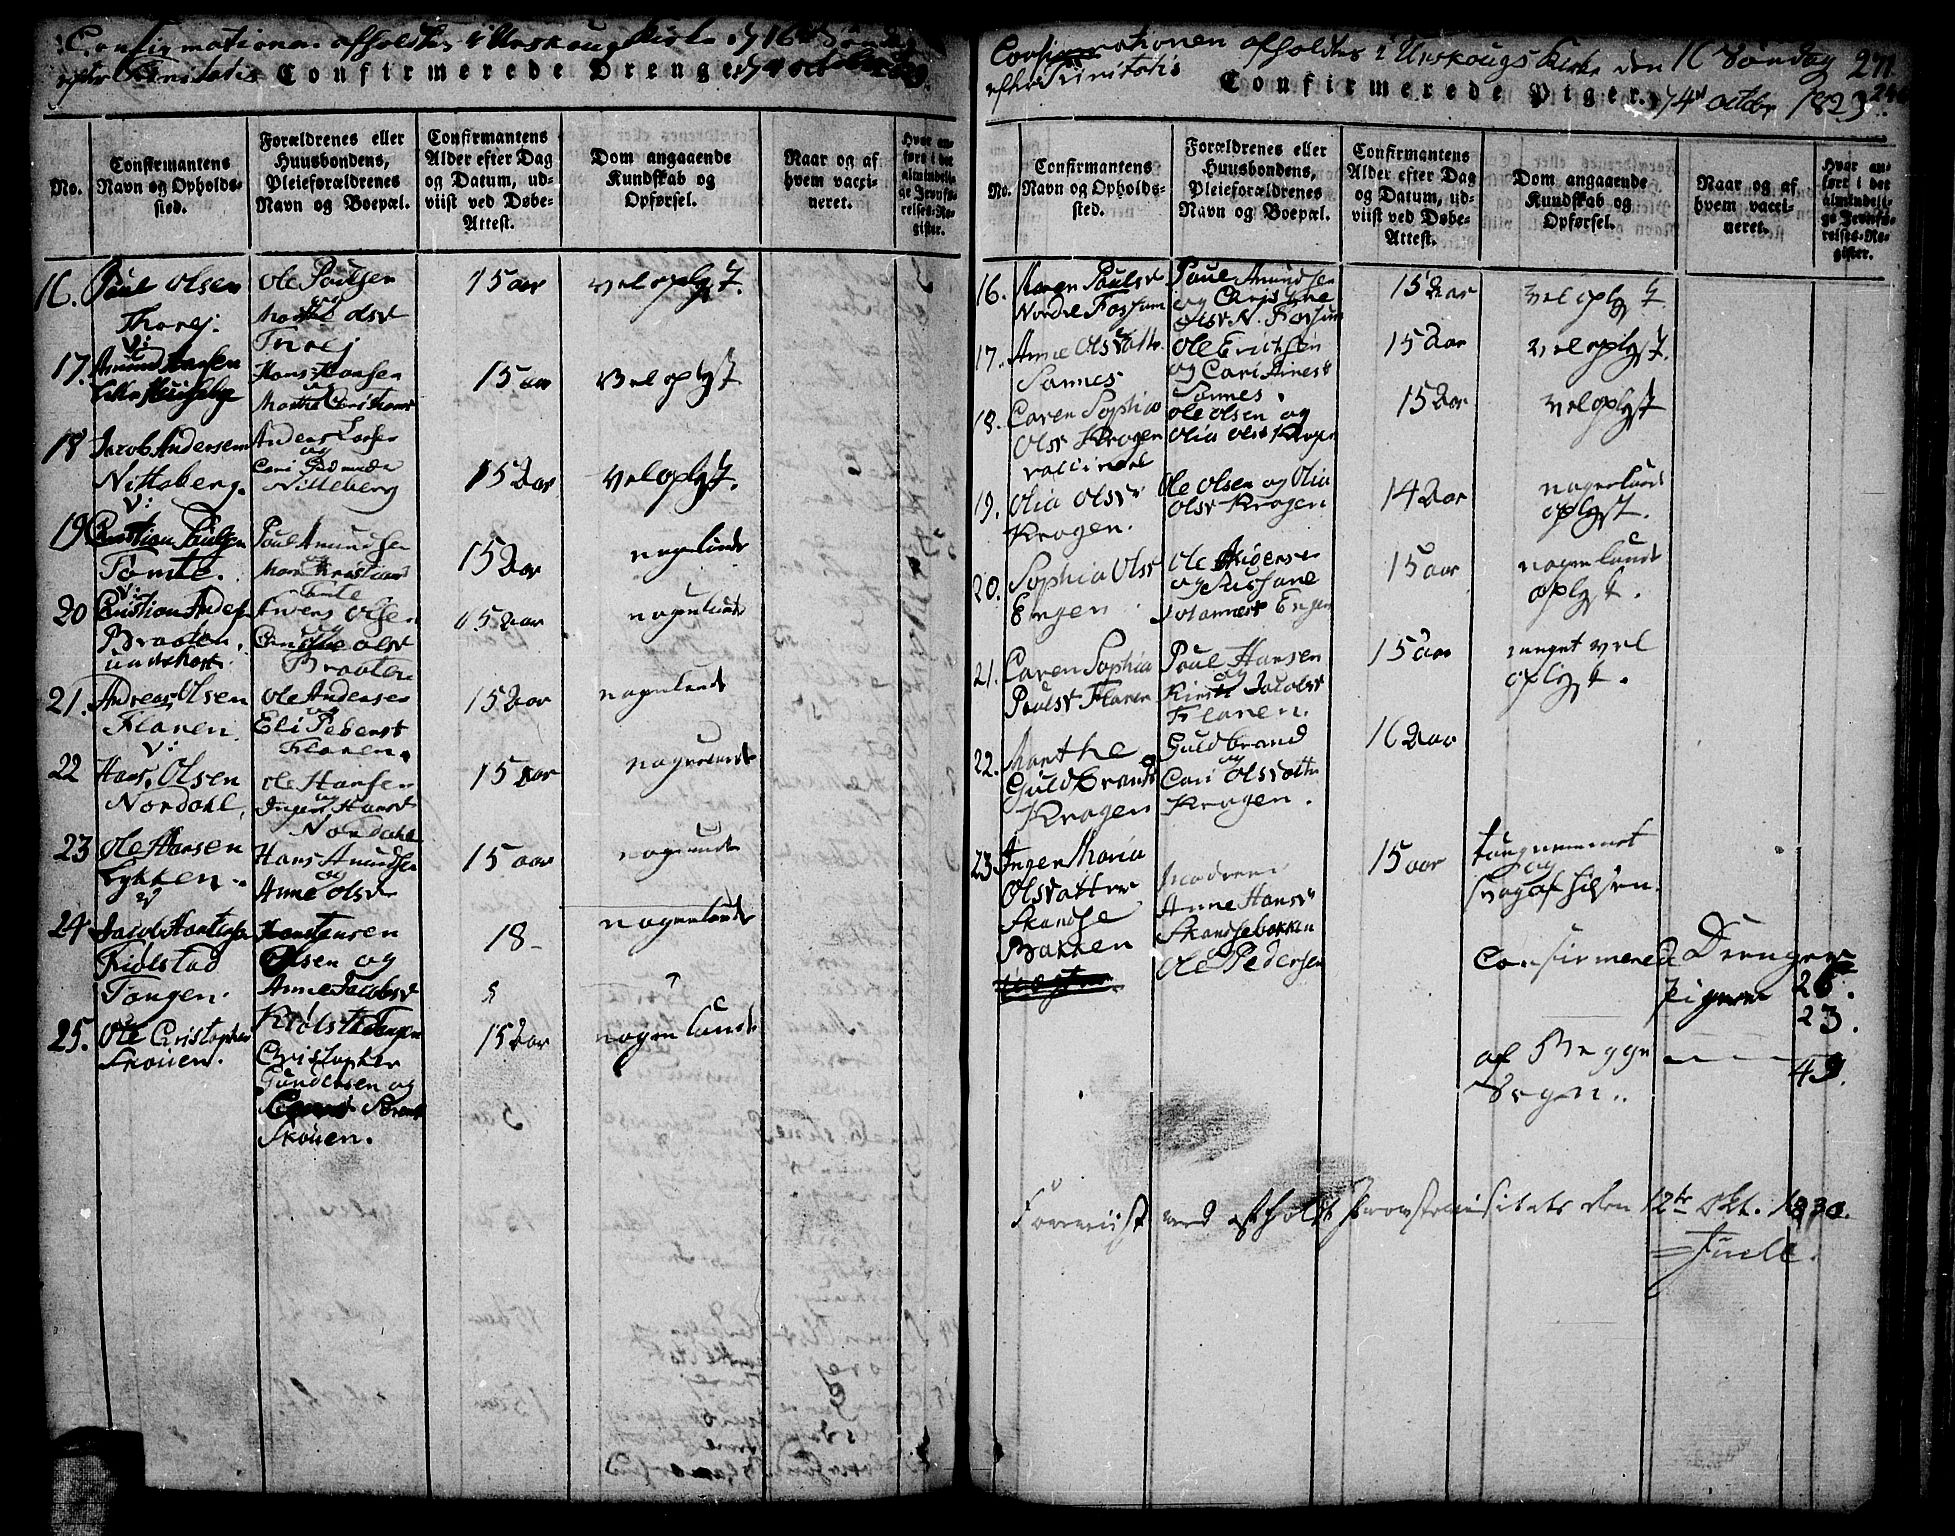 Confirmationen afholdten i Urskoug Kirke d 16de Søndag
efter Trinitatis Confirmerede Drenge. d 4 october 1829.
No.
Confirmantens
Navn og Opholds-
sted.
Forældrenes eller
Huusbondens,
Pleieforældrenes
Navn og Boepæl.
Confirmantens
Alder efter Dag
og Datum, ud-
viist ved Døbe-
Attest.
Dom angaaende
Kundskab og
Opførsel.
Naar og af
hvem vacci-
neret.
Hvor an-
ført i det
almindeli-
ge Jevnfø-
relses-Re-
gister.
16. Paul Olsen
Thorej.
Ole Paulsen
og
Marthe Olsd
Thorej
15 aar
vel oplyst.
17. Amund Hansen
Hans Hansen
og
Marthe Christians
15 aar
Vel oplyst
18 Jacob Andersen
Nitteberg.
Anders Larsen
og
Cari Gudmunds
Nitteberg
15 2/4 aar
vel oplyst.
19. Christian Paulsen
Tomte.
Paul Amundsen
og
Mari Kristians
Tomte
15 aar
nogenlunde
20 Christian Anders
Braaten.
Anders Olsen
og
Olsd
Braaten
15 aar
nogenlunde
21. Andreas Olsen
Flaren.
Ole Andersen
og
Eli Pedersd
Flaren.
15 aar
nogenlunde
22 Hans Olsen
Nordahl.
Ole Hansen
og
Inger Hansd
Nordahl
15 aar
nogenlunde
23 Ole Hansen
Lykken.
Hans Amundsen
og
Anne Olsd
15 aar
nogenlunde
24 Jacob
Kiølstad
Tangen.
Olsen og
Anne Jacobsd
Kiølstad Tangen
18
nogenlunde
25. Ole Christophers
Skouen.
Christopher
Gundersen og
Skouen.
15 aar
nogenlunde
Confirmationen afholdtes i Urskougs Kirke den 16 Søndag 271
efter Trinitatis Confirmerede Piger. d 4de octobr 1829.
No.
Confirmantens
Navn og Opholds-
sted.
Forældrenes eller
Huusbondens,
Pleieforældrenes
Navn og Boepæl.
Confirmantens
Alder efter Dag
og Datum, ud-
viist ved Døbe-
Attest.
Dom angaaende
Kundskab og
Opførsel.
Naar og af
hvem vacci-
neret.
Hvor an-
ført i det
almindeli-
ge Jevnfø-
relses-Re-
gister.
16. Maren Paulsd
Nordre Fossum
Paul Amundsen
og Christine
Olsd N. Fossum
15 aar
vel oplyst.
17. Anne Olsdatter
Sannes
Ole Erichsen
og Cari Arnesd
Sannes.
15 aar
vel oplyst.
18. Caren Sophia
Olsd Krogen
vaccineret
Ole Olsen og
Olia Olsd Krogen
15 aar
vel oplyst
19. Olia Olsd
Krogen.
Ole Olsen og Olia
Olsd Krogen
14 aar
nogenlunde
oplyst.
20. Sophia Olsd
Engen
Ole Andersen
og
Johannesd Engen
15 aar
nogenlunde
oplyst.
21. Caren Sophia
Paulsd Flaren
Paul Hansen
og
Kirsti Jacobsd
Flaren.
15 aar
meget vel
oplyst.
22. Marthe
Guldbrands
Krogen
Guldbrand
og
Cari Olsdatter
Krogen.
16 aar
23 Inger Maria
Olsdatter
Skandse
Bakken
Moderen
Anne Hansd
Skandsebakken
Ole Pedersen
15 aar
tungnemmet
og
svag af Hilsen.
Confirmerede Drenger
26.
Pigerne
23.
af Begge
49.
Sogn.
Foreviist ved afholdt Provstevisitats den 12te Okt. 1830.
Juell.